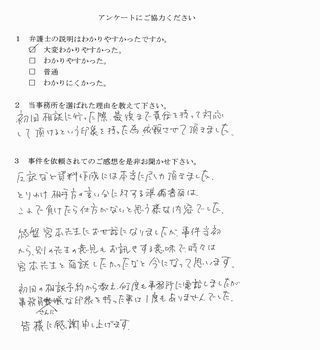 アンケートにご協力ください
1 弁護士の説明はわかりやすかったですか。
☑ 大変わかりやすかった。
□ わかりやすかった。
□ 普通
□ わかりにくかった。
2 当事務所を選ばれた理由を教えて下さい。
初回相談に行った際、最後まで責任を持って対応
して頂けるという印象を持った為依頼させて頂きました。
3 事件を依頼されてのご感想を是非お聞かせ下さい。
反訴など資料作成には本当に尽力頂きました。
とりわけ相手方の言い分に対する準備書面は、
これで負けたら仕方がないと思う様な内容でした。
終盤宮本先生にお世話になりましたが事件当初
から、別の先生の意見もお訊きする意味で時々は
宮本先生と面談したかったなと今になって思います。
初回の相談予約から数え、何度も事務所に電話しましたが
事務員さんに な印象を持った事は1度もありませんでした。
皆様に感謝申し上げます。